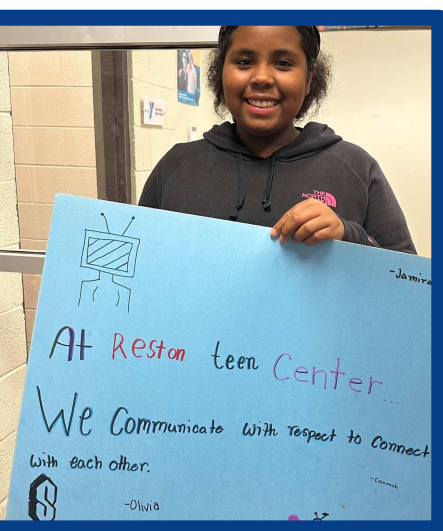 THE
NORTH
-Jamira
At Reston teen Center...
We Communicate with respect to Connect
with each other.
-Olivia